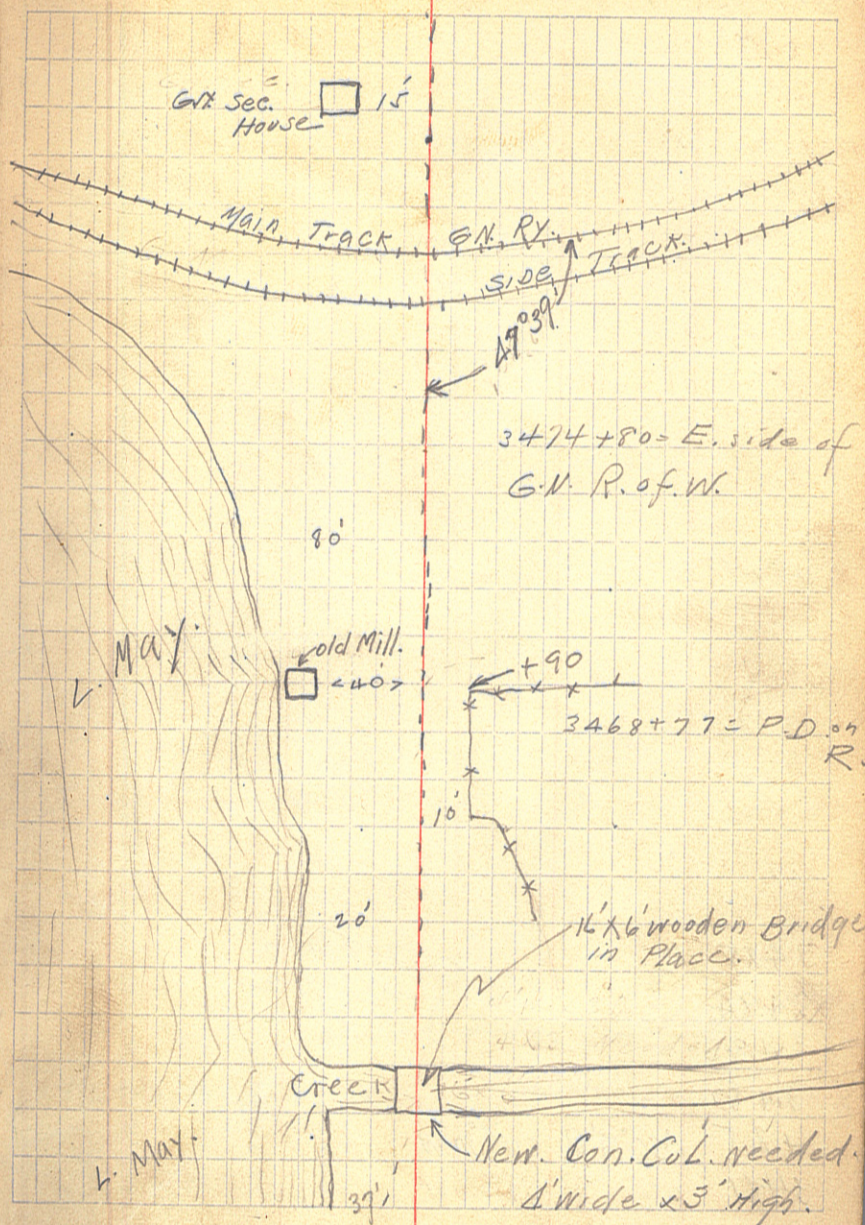 Sec. 15'
House
Main Track GN. RY.
SIDE Track.
47°39'
3474+80= E. side of
G.N. R. of. W.
80'
L. May.
old Mill.
<40>
+90
3468+77= P.D. on
R.
10'
20'
16'x6' wooden Bridge
in Place.
Creek
L. May.
New. Con. Cul. needed.
4' wide x 3' High.
37'